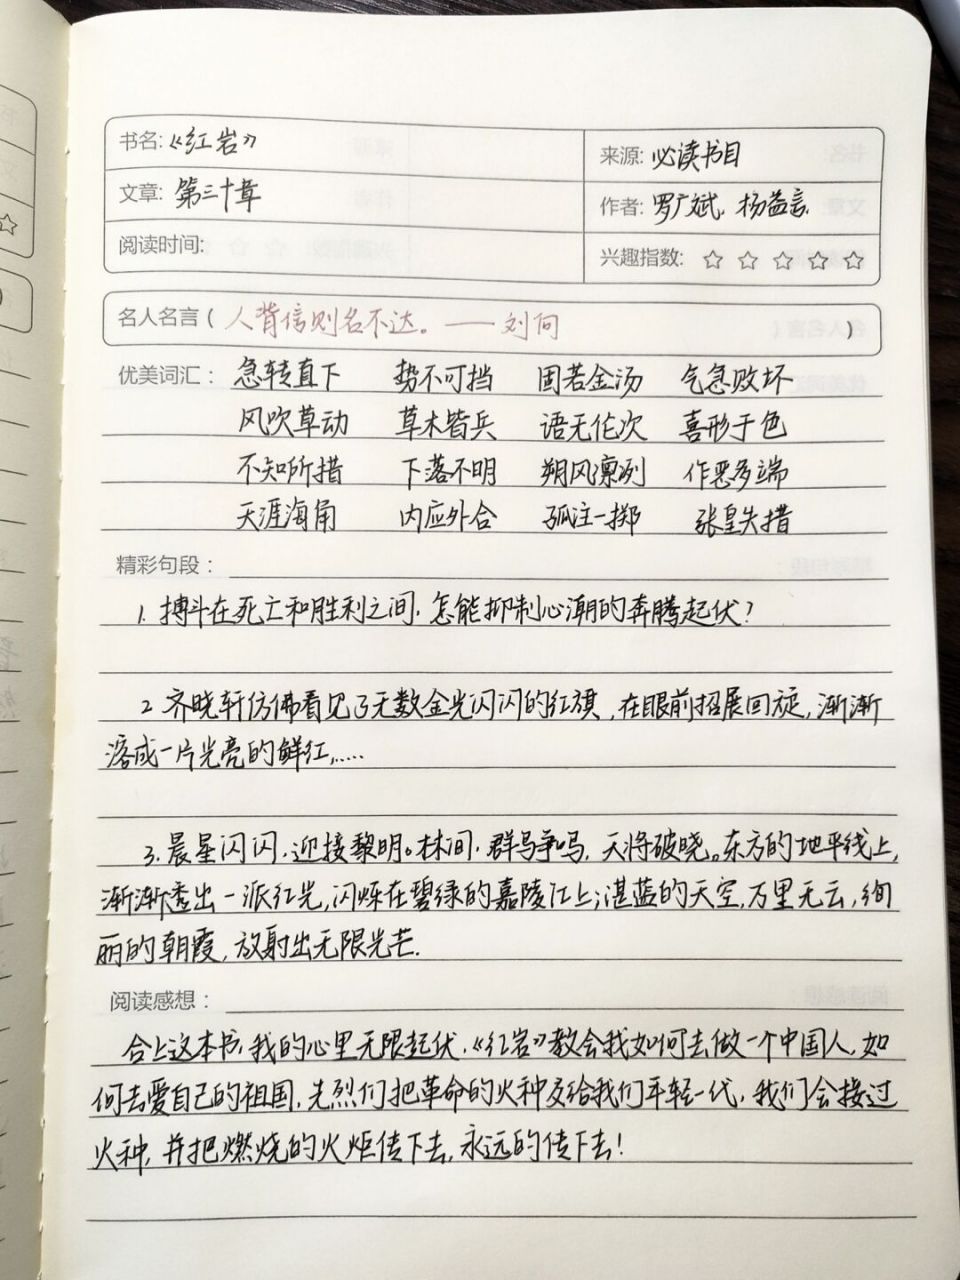 书名:《红岩》
来源: 必读书目
文章: 第三十章
作者: 罗广斌、杨益言
阅读时间:
兴趣指数: ☆ ☆ ☆ ☆ ☆
名人名言( 人背信则名不达。——刘向 )
优美词汇: 急转直下 势不可挡 固若金汤 气急败坏
风吹草动 草木皆兵 语无伦次 喜形于色
不知所措 下落不明 朔风凛冽 作恶多端
天涯海角 内应外合 孤注一掷 张皇失措
精彩句段:
1. 搏斗在死亡和胜利之间,怎能抑制心潮的奔腾起伏?
2 齐晓轩仿佛看见了无数金光闪闪的红旗,在眼前招展回旋,渐渐
溶成一片光亮的鲜红,.....
3. 晨星闪闪,迎接黎明。林间,群鸟争鸣,天将破晓。东方的地平线上,
渐渐透出一派红光,闪烁在碧绿的嘉陵江上;湛蓝的天空,万里无云,绚
丽的朝霞,放射出无限光芒.
阅读感想:
合上这本书,我的心里无限起伏,《红岩》教会我如何去做一个中国人,如
何去爱自己的祖国,先烈们把革命的火种交给我们年轻一代,我们会接过
火种,并把燃烧的火炬传下去,永远的传下去!